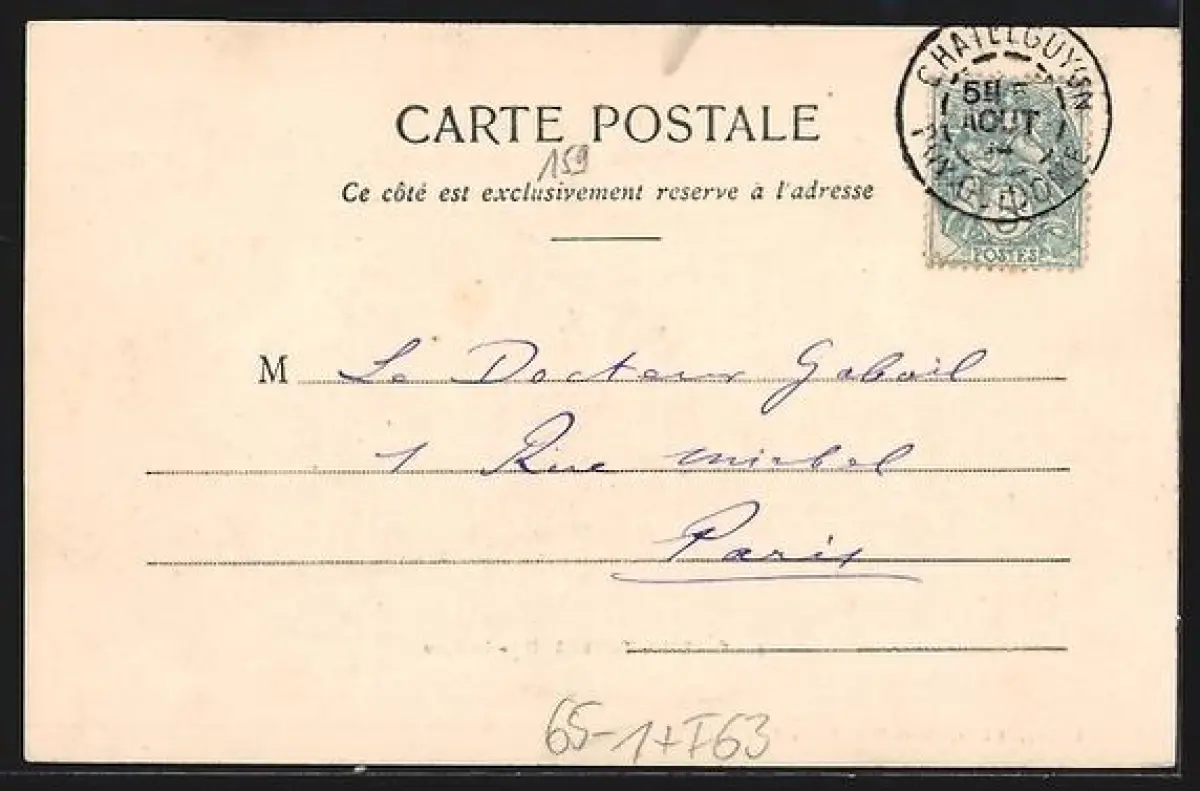 CHATELGUYON
5E
AOUT
PUY-DE-DOME
POSTES
CARTE POSTALE
159
Ce côté est exclusivement reserve à l'adresse
M Le Docteur Gaboil
1 Rue Mirbel
Paris
65-1+F63